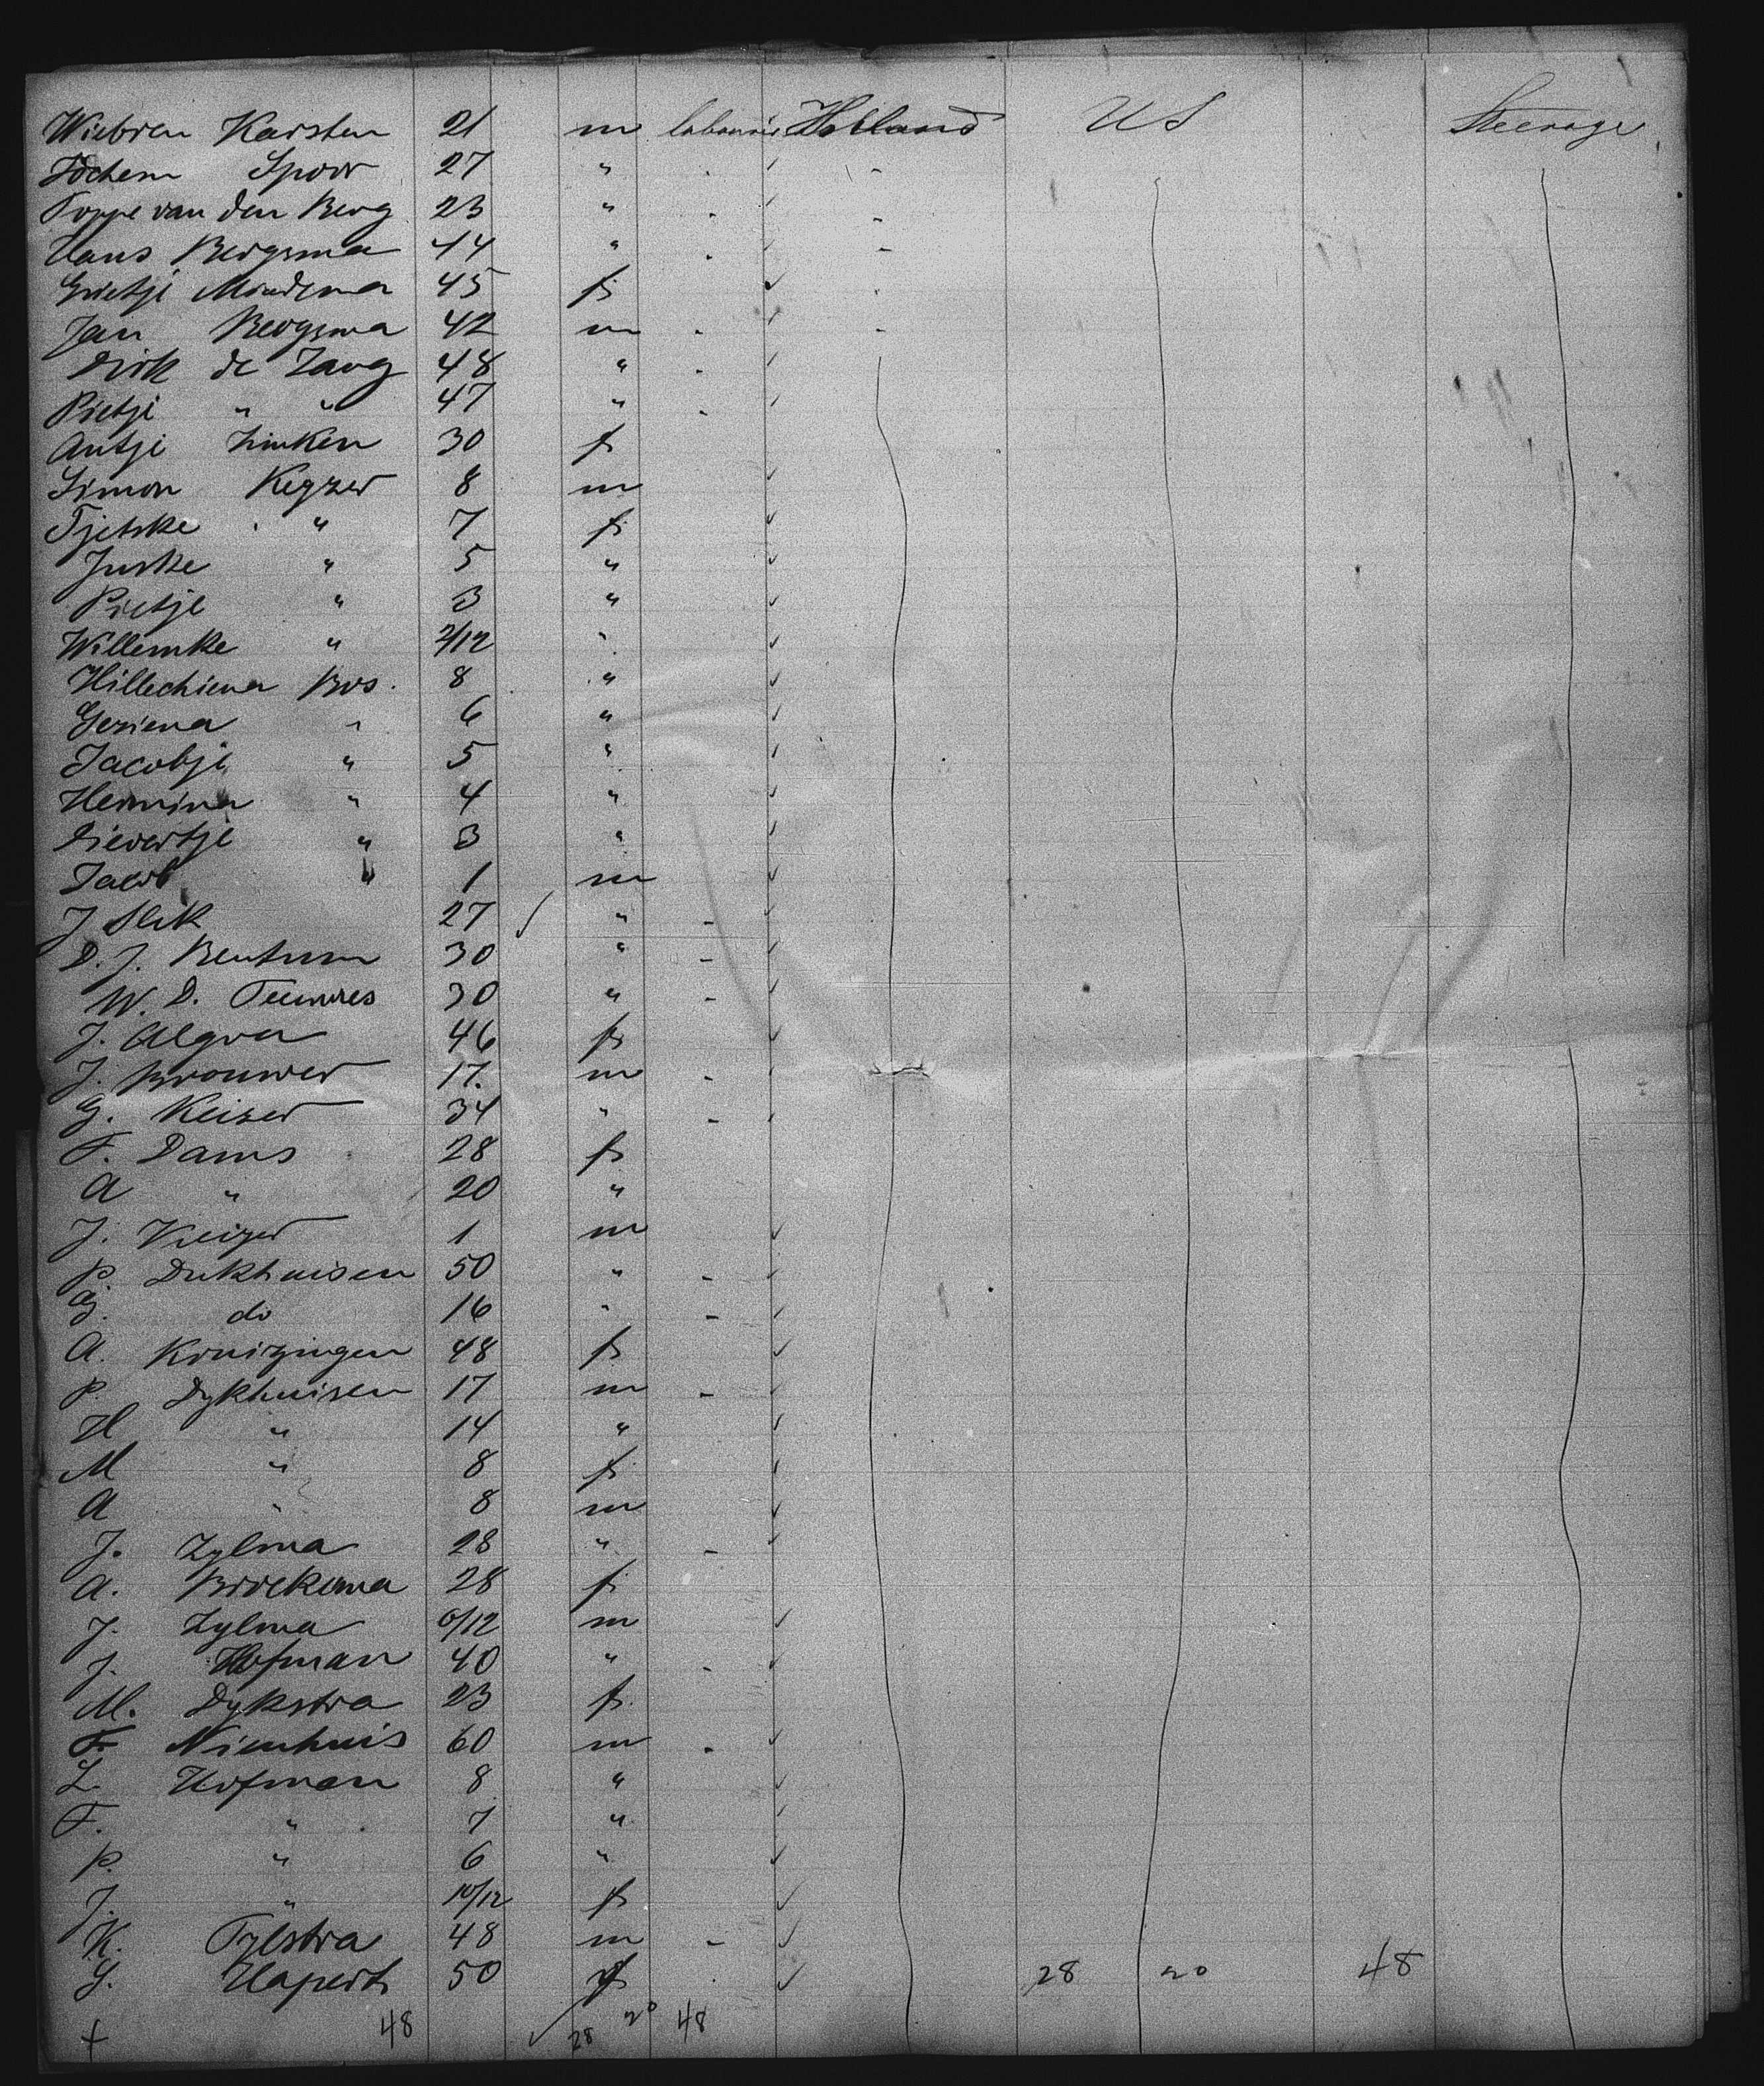 Wiebren Karsten 21 m labourer Holland US Steerage
Jochem Spoor 27 "
Foppe van den Berg 23 "
Hans Bergsma 44 "
Grietje Mindema 45 f
Jan Bergsma 42 m
Dirk de Jong 48 "
Pietje " " 47 "
Antje Zinken 30 f
Simon Keyzer 8 m
Tjetske " 7 f
Juske " 5 "
Pietje " 3 "
Willemke " 2/12 "
Hillechiena Bos. 8 "
Geziena " 6 "
Jacobje " 5 "
Hermina " 4 "
Sievertje " 3 "
Jacob " 1 m
J Slek 27 "
D. J. Bentum 30 "
W. D. Teunnes 30 "
J. Algra 46 f
J. Brouwer 17. m
G. Keizer 34 "
F. Dams 28 f
A " 20 "
J. Keizer 1 m
P. Dukhuisen 50 "
G. do 16 "
A. Kruizingen 48 f
P. Dykhuisen 17 m
H " 14 "
M " 8 f
A " 8 m
J. Zylma 28 "
A. Broekema 28 f
J. Zylma /12 m
J. Hofman 40 "
M. Dykstra 23 f.
F. Nienhuis 60 m
L. Hofman 8 "
F. " 7 "
P. " 6 "
J. " 10/12 f
K. Tylstra 48 m
S. Hapert 50 f 28 20 48
48 28 20 48